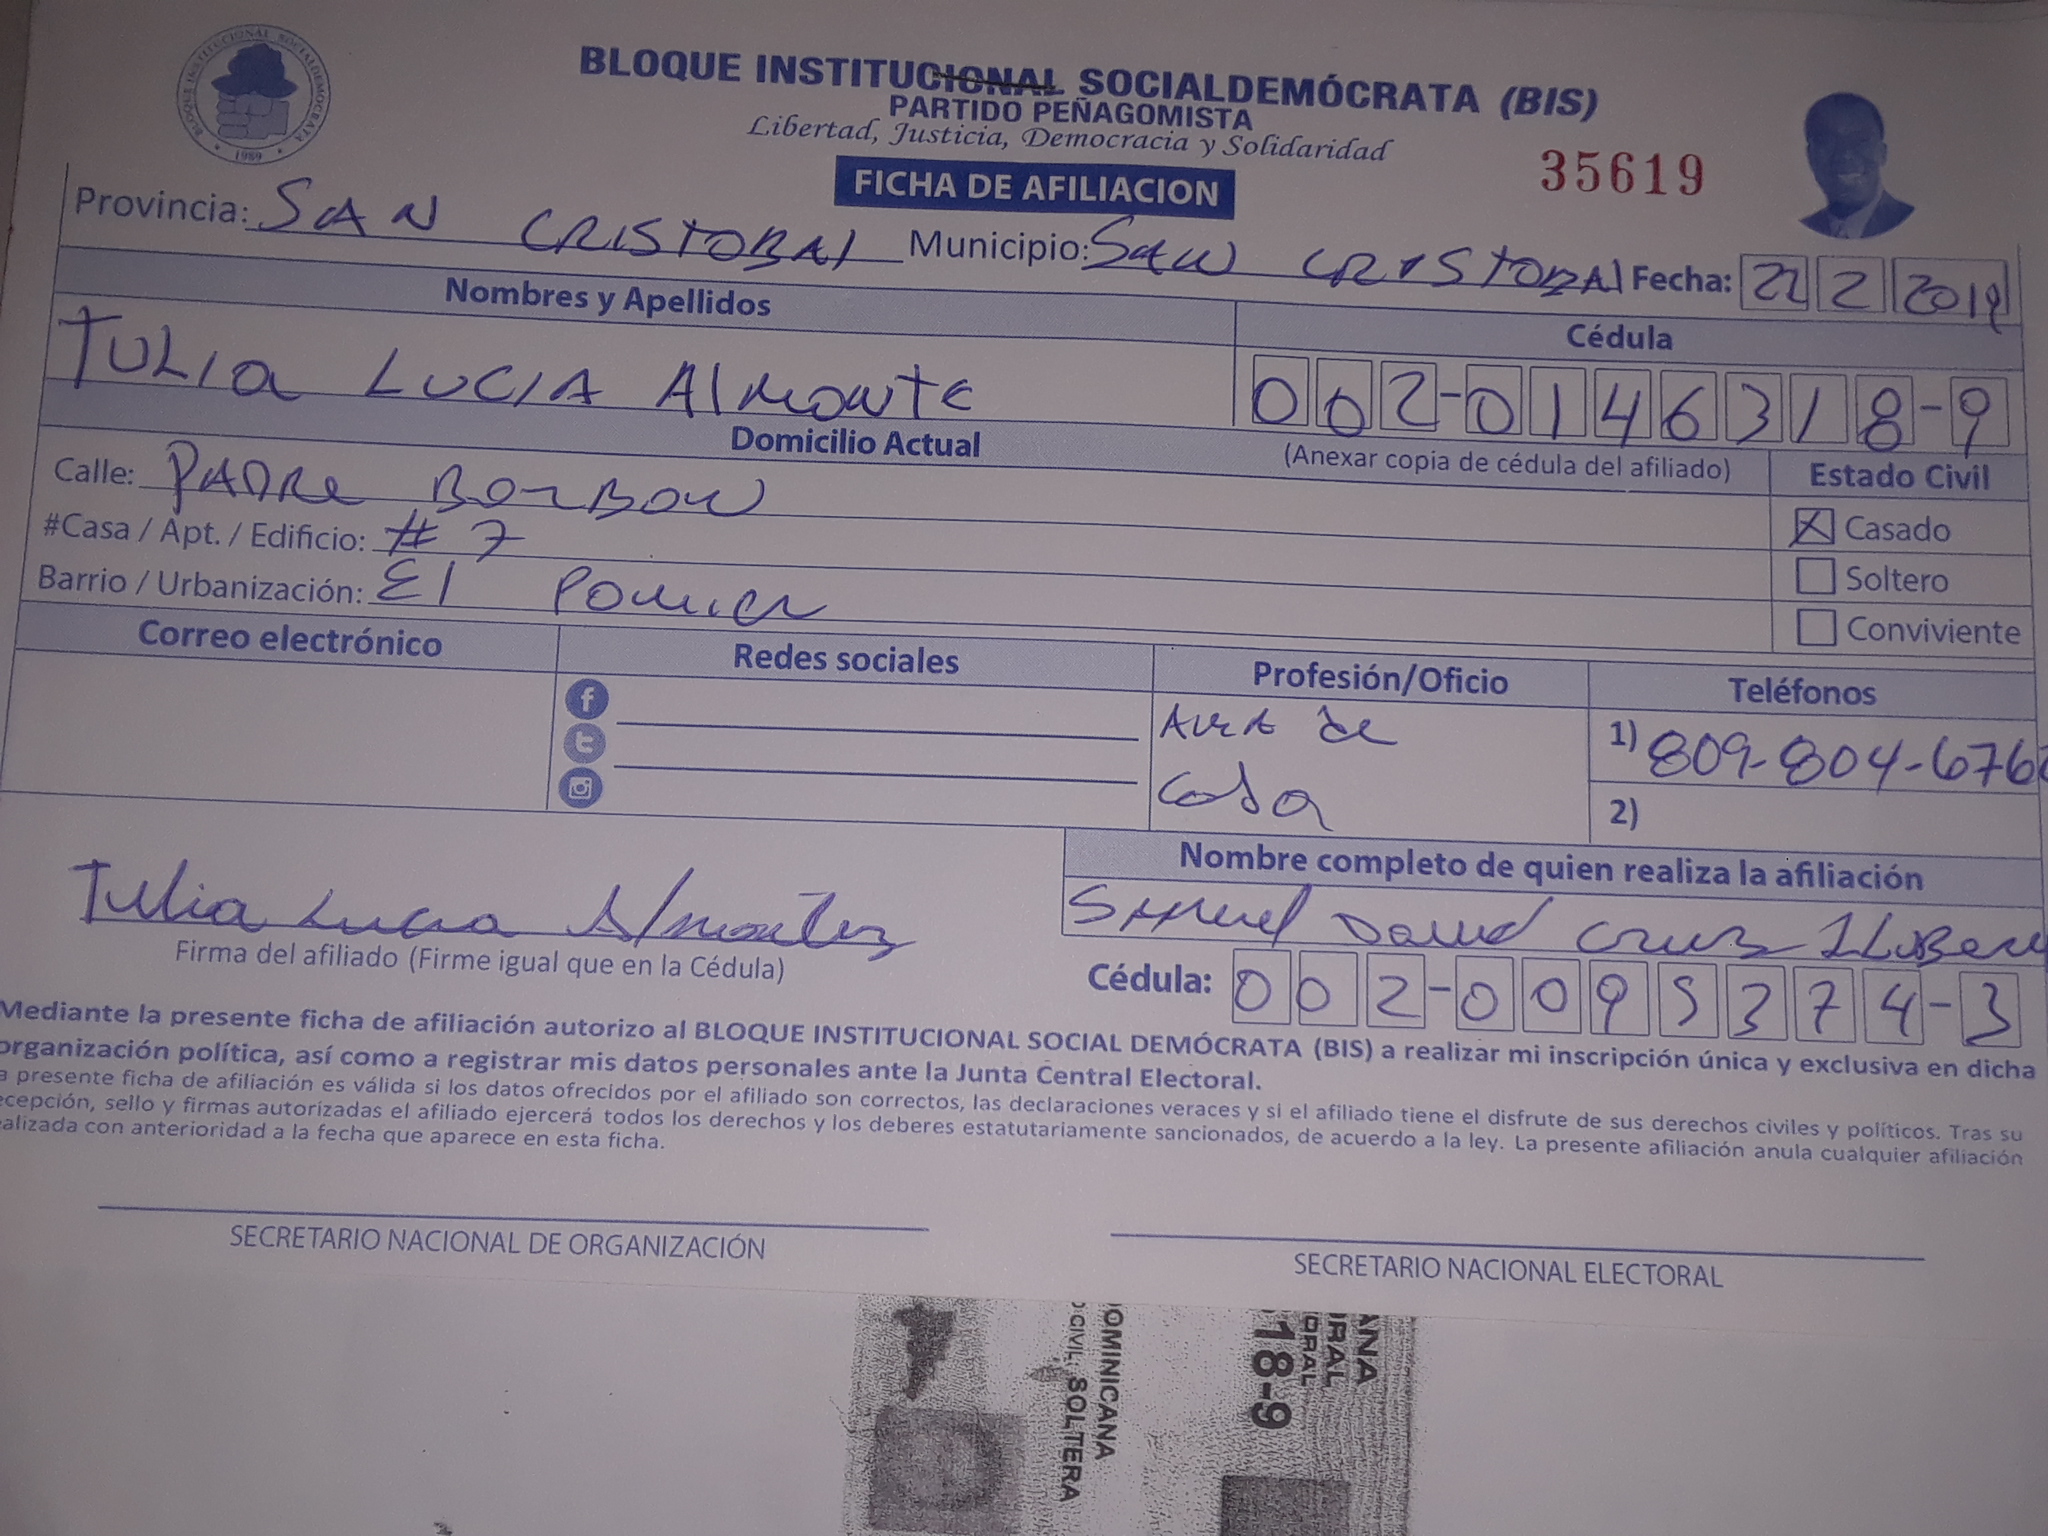 BLOQUE INSTITUCIONAL SOCIALDEMOCRATA
1989
BLOQUE INSTITUCIONAL SOCIALDEMÓCRATA (BIS)
PARTIDO PEÑAGOMISTA
Libertad, Justicia, Democracia y Solidaridad
FICHA DE AFILIACION
35619
Provincia: SAN CRISTOBAl Municipio: SAN CRISTOBAl Fecha: 22 2 2019
Nombres y Apellidos
Cédula
TULIA LUCIA AlMONTE
002-0146318-9
Domicilio Actual
(Anexar copia de cédula del afiliado)
Estado Civil
Calle: PADRE BORBON
X Casado
#Casa / Apt. / Edificio: # 7
Soltero
Barrio / Urbanización: El Pomier
Conviviente
Correo electrónico
Redes sociales
Profesión/Oficio
Teléfonos
AMA de
casa
1) 809-804-676
2)
Nombre completo de quien realiza la afiliación
Tulia Lucia Almontez
Samuel David Cruz
Firma del afiliado (Firme igual que en la Cédula)
Cédula: 002-0095374-3
Mediante la presente ficha de afiliación autorizo al BLOQUE INSTITUCIONAL SOCIAL DEMÓCRATA (BIS) a realizar mi inscripción única y exclusiva en dicha
organización política, así como a registrar mis datos personales ante la Junta Central Electoral.
a presente ficha de afiliación es válida si los datos ofrecidos por el afiliado son correctos, las declaraciones veraces y si el afiliado tiene el disfrute de sus derechos civiles y políticos. Tras su
ecepción, sello y firmas autorizadas el afiliado ejercerá todos los derechos y los deberes estatutariamente sancionados, de acuerdo a la ley. La presente afiliación anula cualquier afiliación
ealizada con anterioridad a la fecha que aparece en esta ficha.
SECRETARIO NACIONAL DE ORGANIZACIÓN
SECRETARIO NACIONAL ELECTORAL
OMINICANA
CIVIL: SOLTERA
ANA
RAL
ORAL
18-9